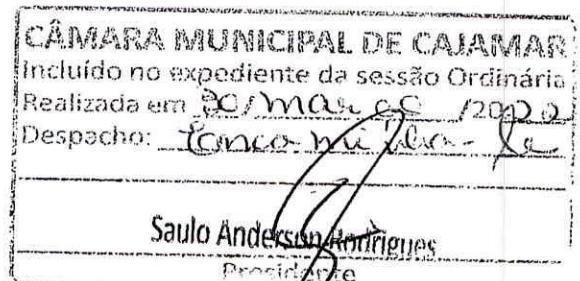 CÂMARA MUNICIPAL DE CAJAMAR
Incluído no expediente da sessão Ordinária
Realizada em 30/março /2020
Despacho: Encaminhe-se
Saulo Anderson Rodrigues
Presidente